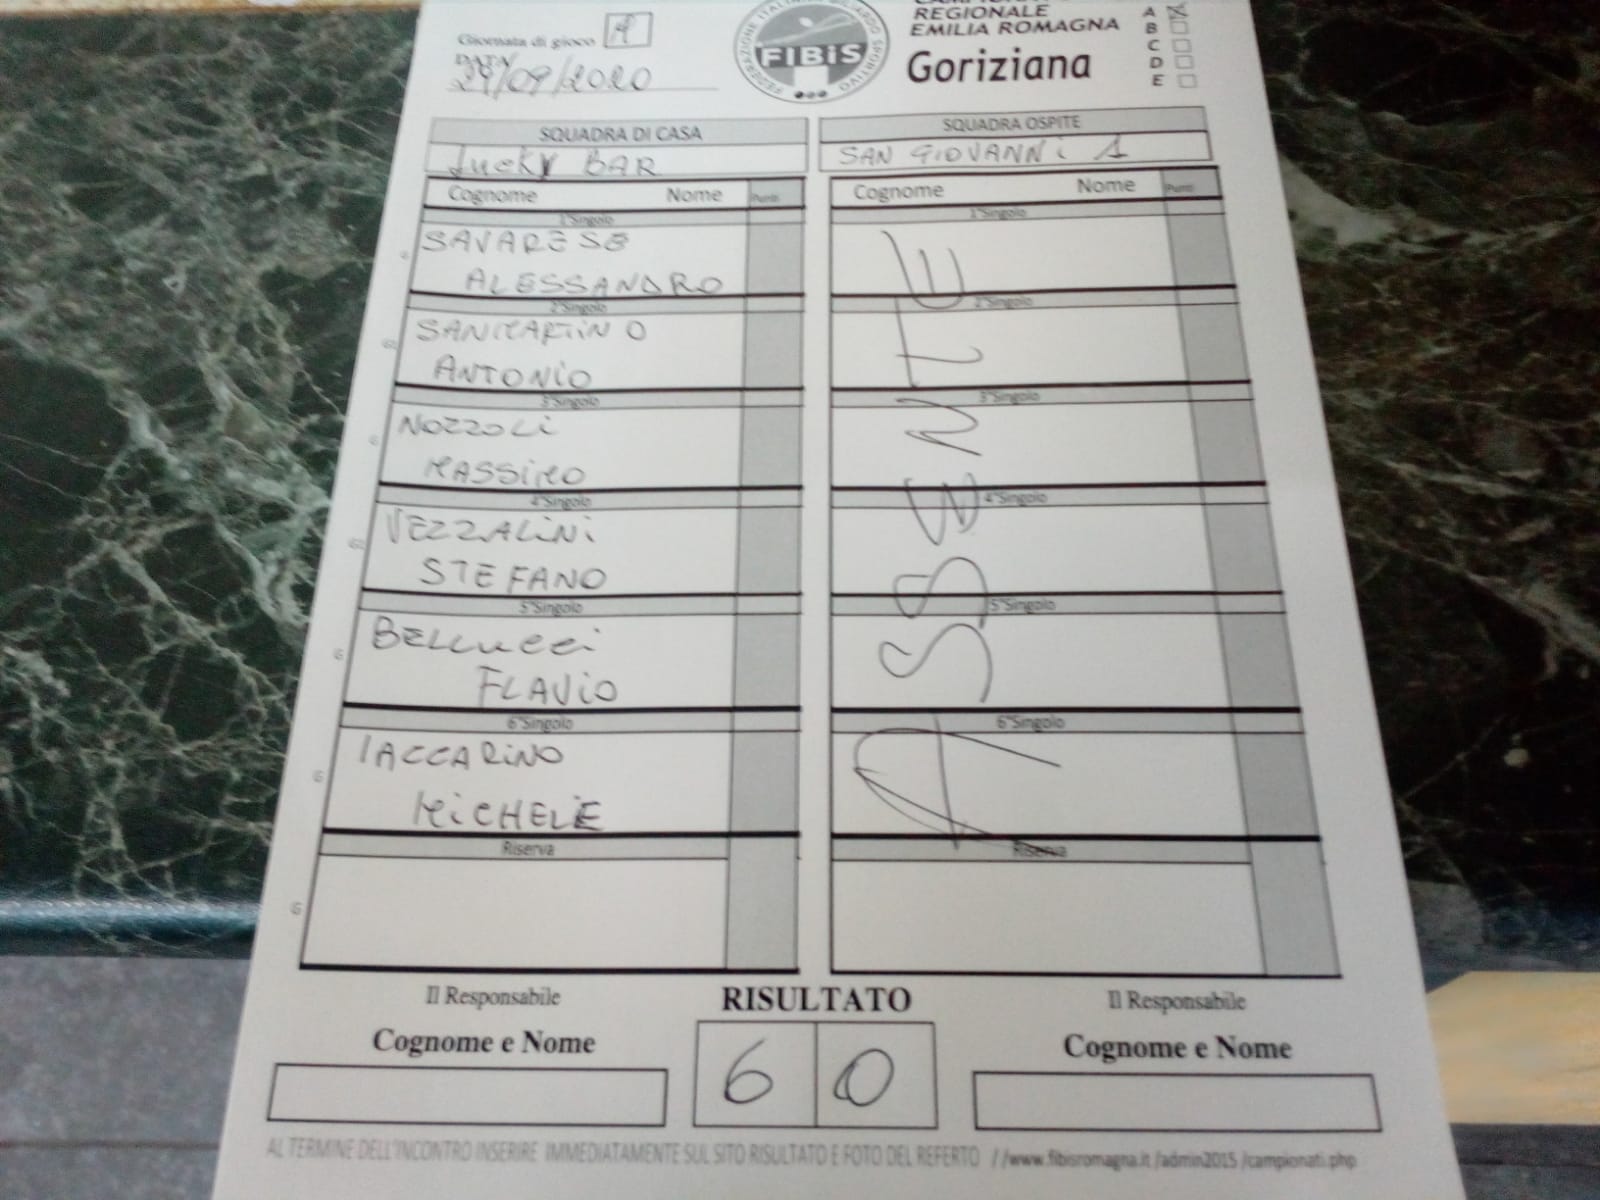 REGIONALE
EMILIA ROMAGNA
Goriziana
A
B
C
D
E
Giornata di gioco
DATA
29/09/2020
FEDERAZIONE ITALIANA BILIARDO SPORTIVO
FIBiS
SQUADRA DI CASA
Lucky BAR
SQUADRA OSPITE
SAN GIOVANNi 1
Cognome Nome Punti
Cognome Nome Punti
1°Singolo
1°Singolo
SAVARESE
ALESSANDRO
2°Singolo
2°Singolo
SANMARTINO
ANTONIO
3°Singolo
3°Singolo
NOZZOLi
MASSIMO
4°Singolo
4°Singolo
VEZZALiNi
STEFANO
5°Singolo
5°Singolo
BELLUCCi
FLAViO
6°Singolo
6°Singolo
IACCARiNO
MiCHELE
ASSENTE
Riserva
Riserva
Il Responsabile
RISULTATO
Il Responsabile
Cognome e Nome
6 0
Cognome e Nome
AL TERMINE DELL'INCONTRO INSERIRE IMMEDIATAMENTE SUL SITO RISULTATO E FOTO DEL REFERTO //www.fibisromagna.it /admin2015 /campionati.php